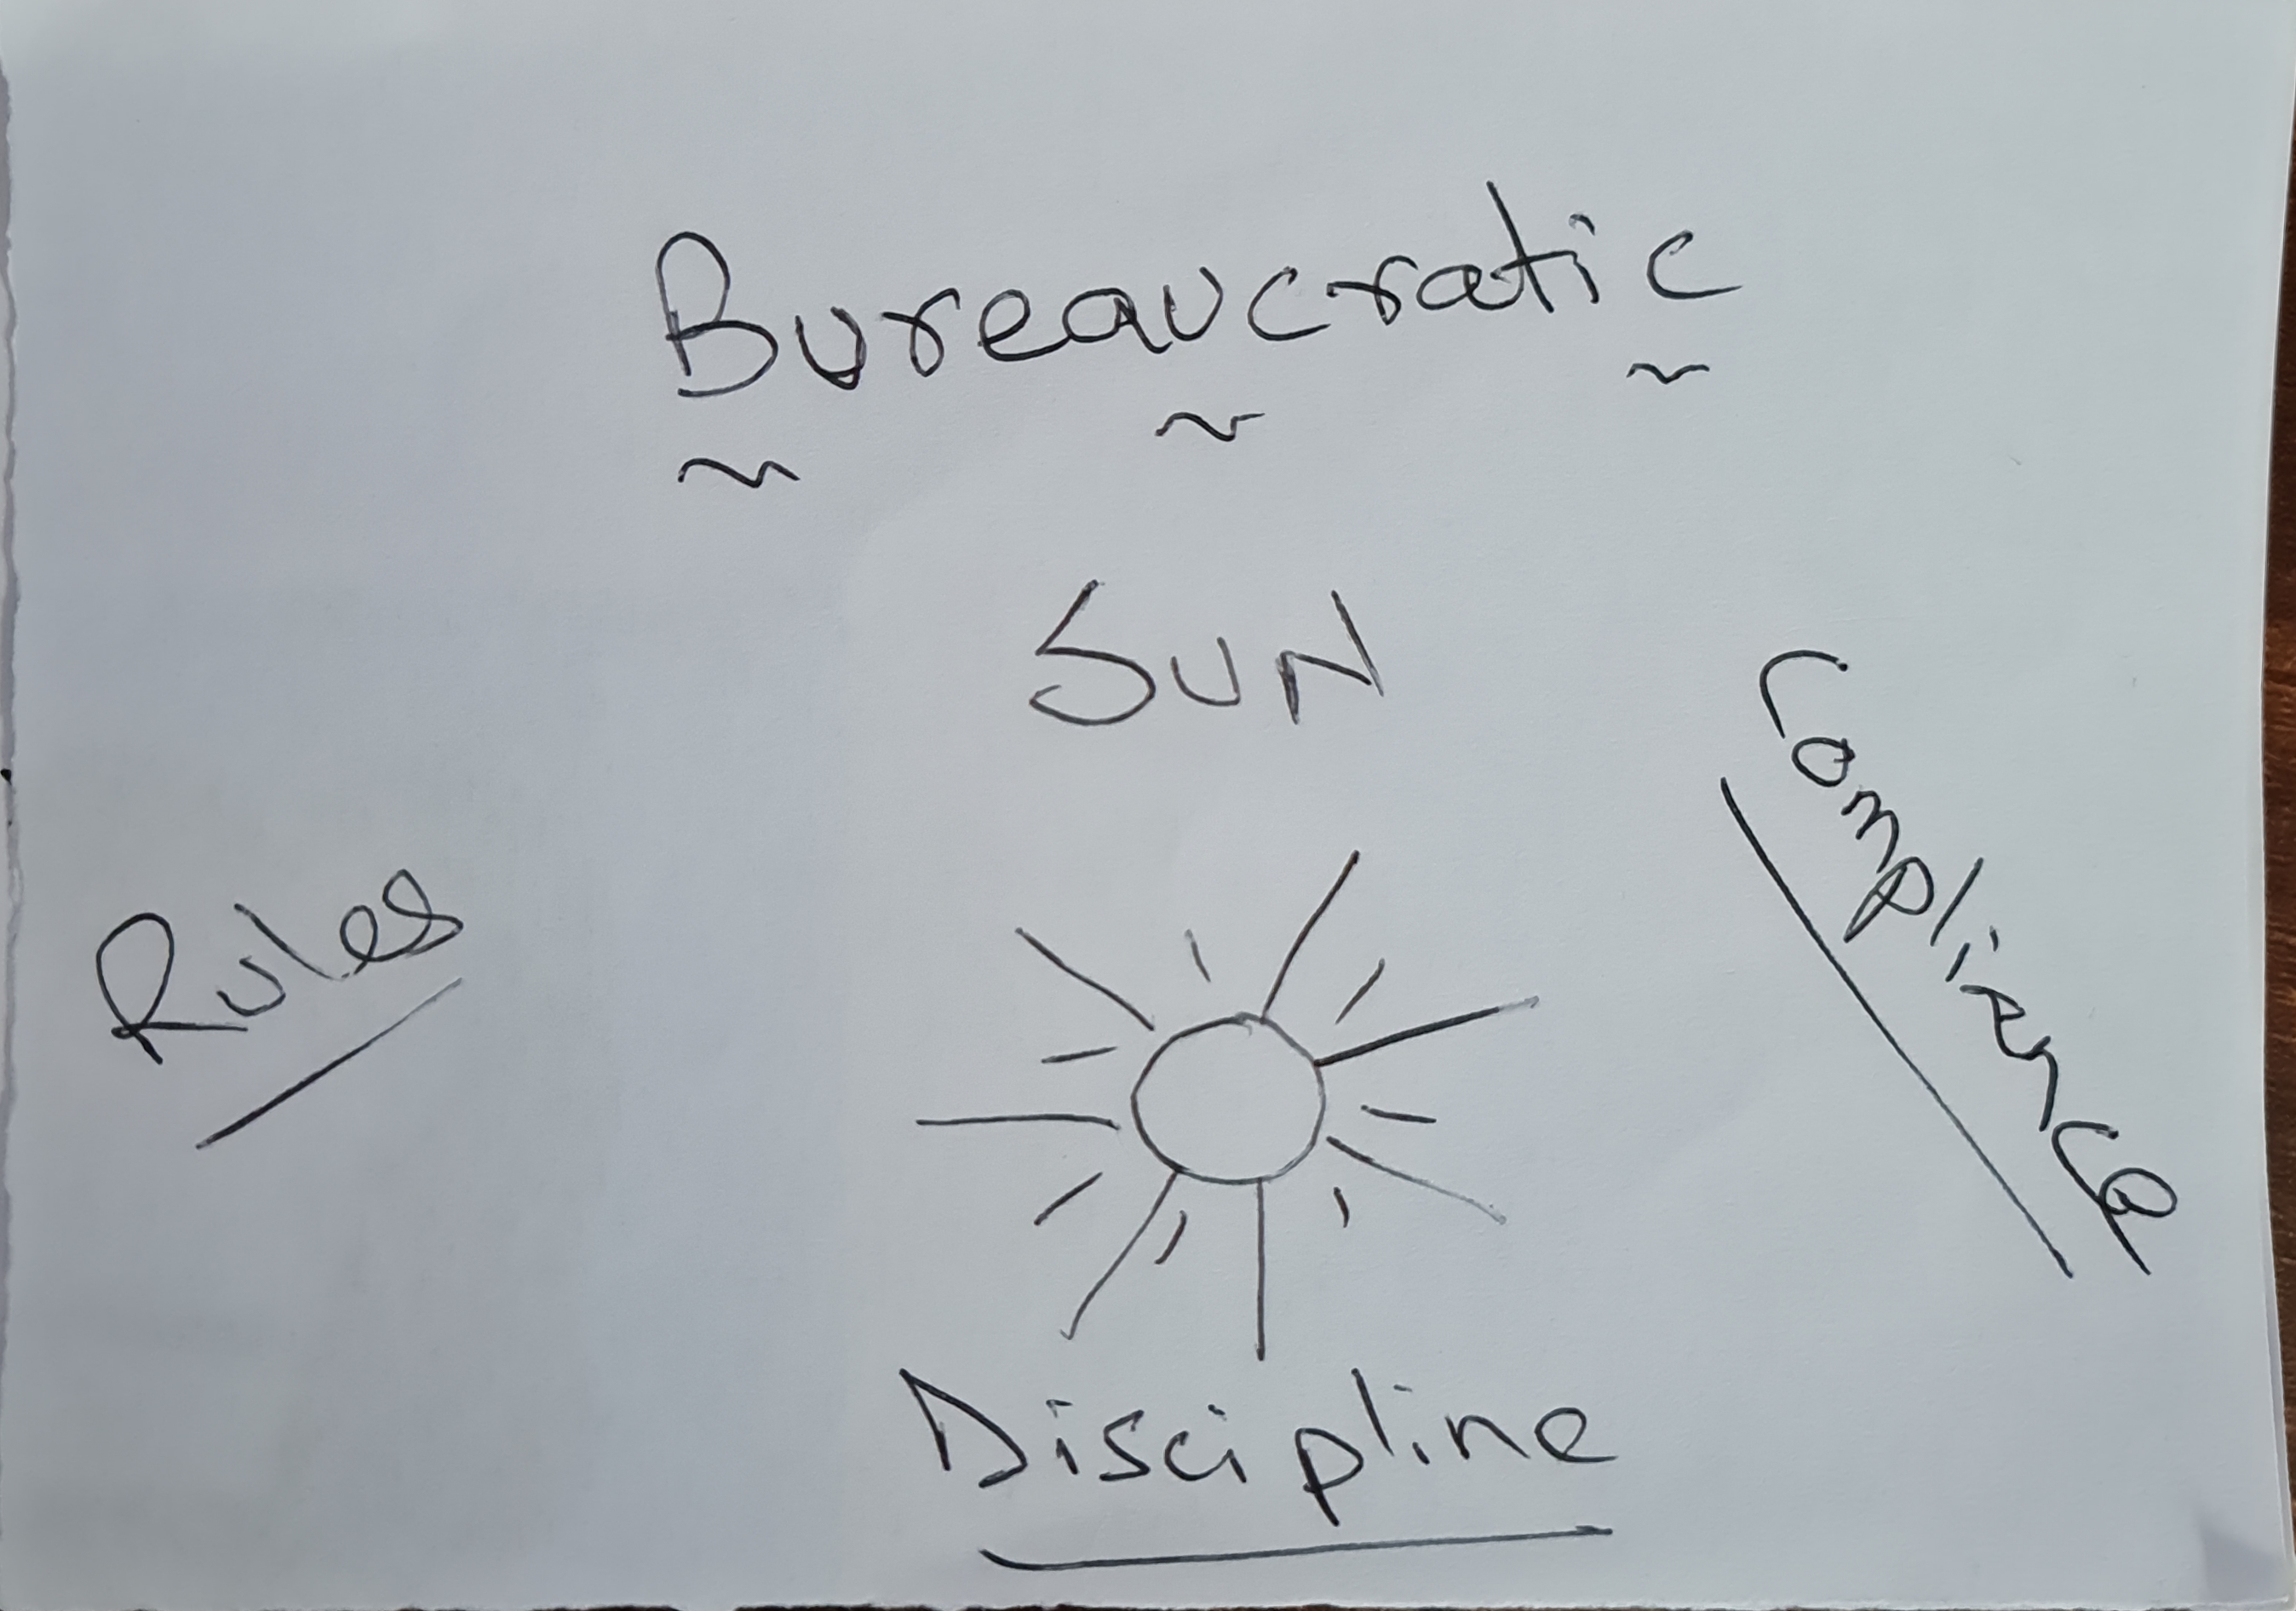 Bureaucratic
SUN
Rules
Complience
Discipline